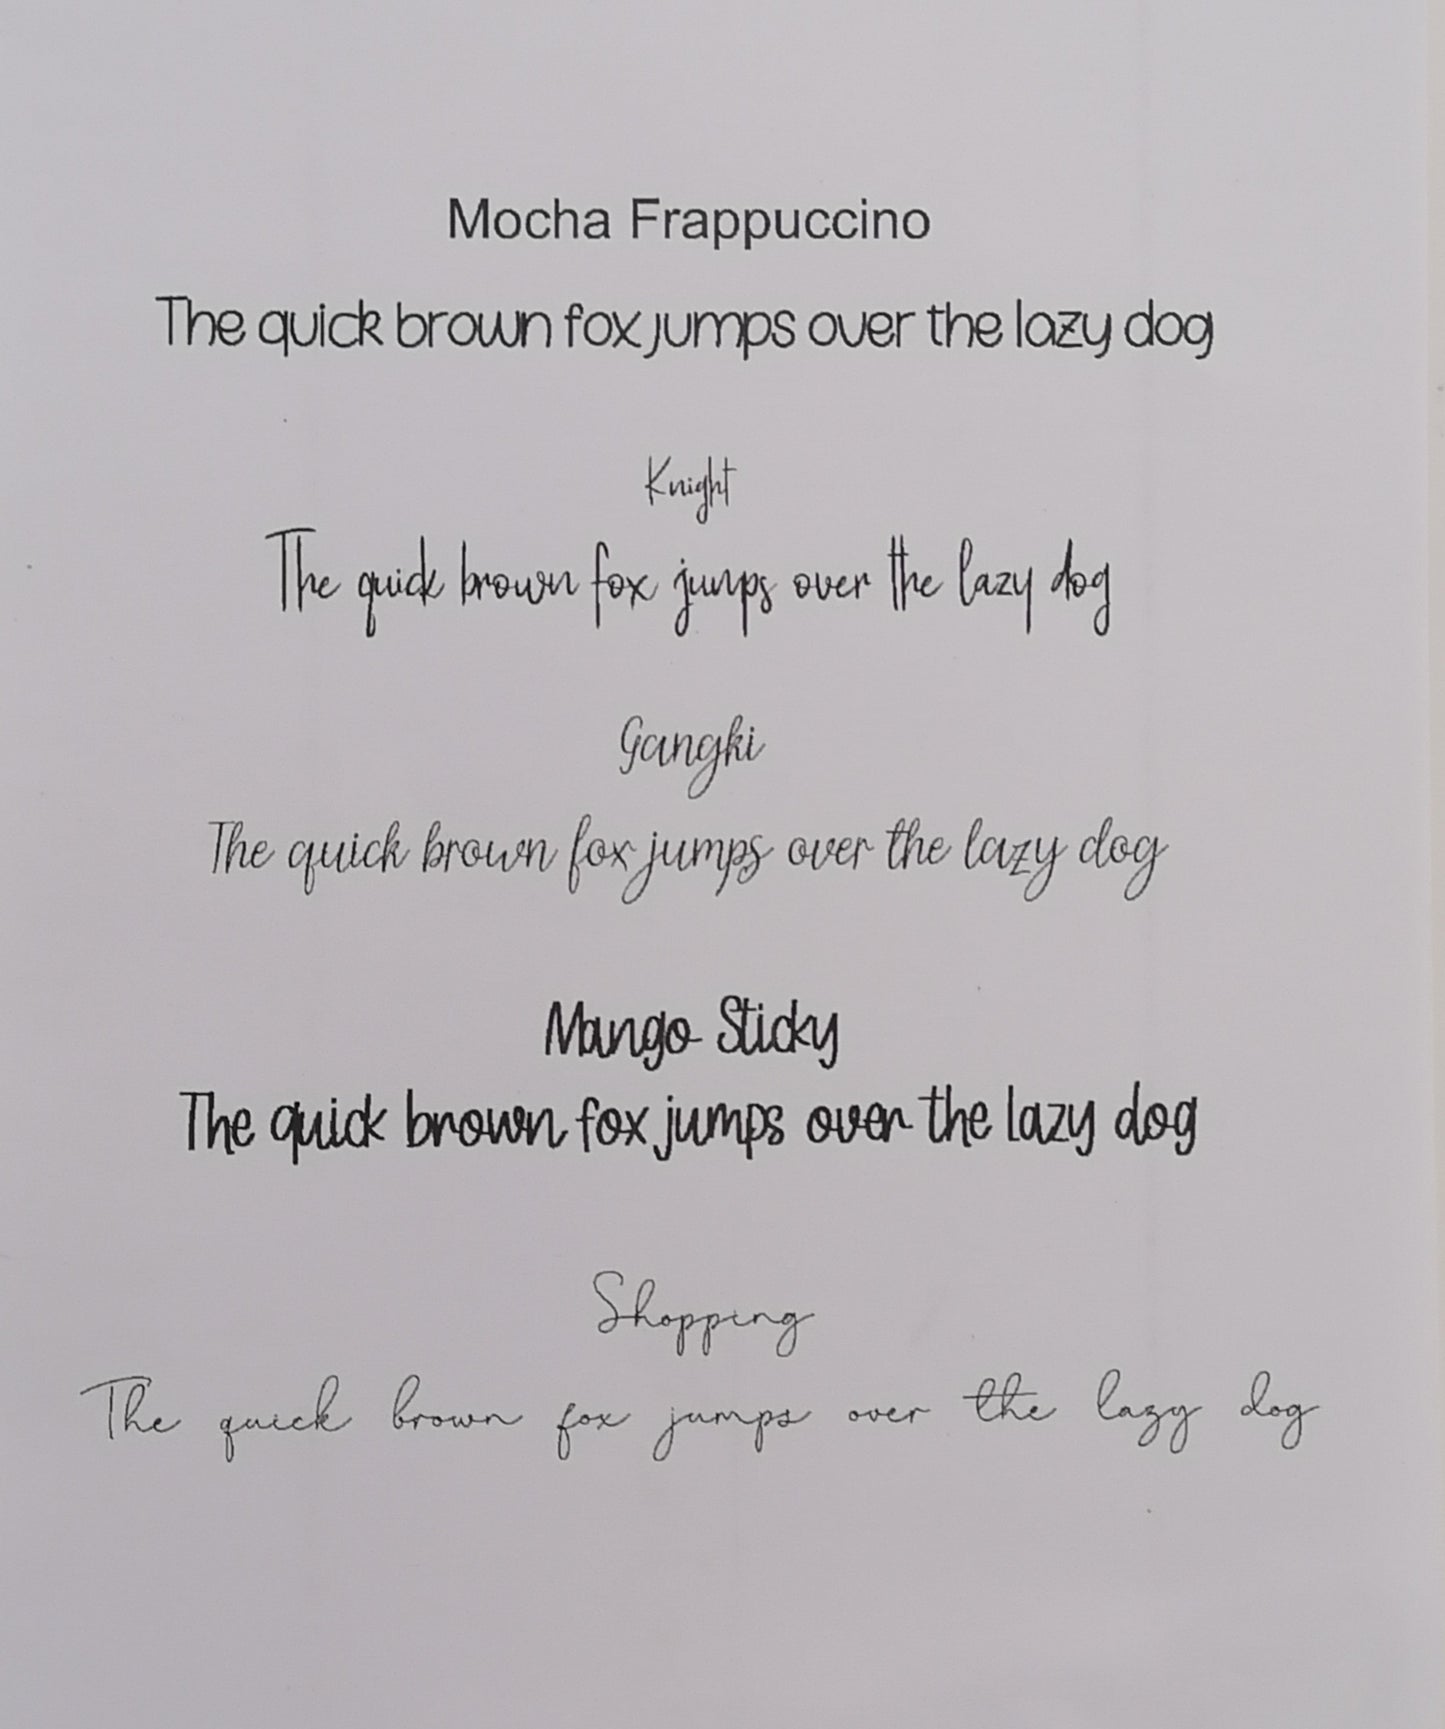 Mocha Frappuccino
The quick brown fox jumps over the lazy dog
Knight
The quick brown fox jumps over the lazy dog
Gangki
The quick brown fox jumps over the lazy dog
Mango Sticky
The quick brown fox jumps over the lazy dog
Shopping
The quick brown fox jumps over the lazy dog